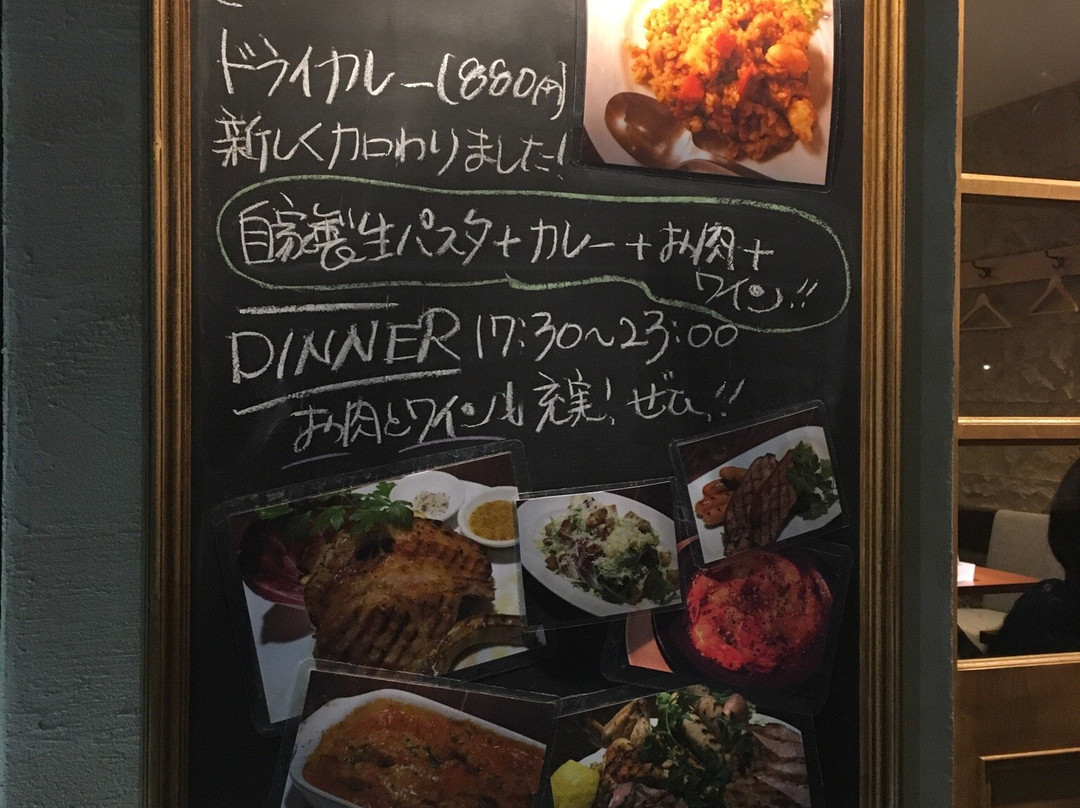 ドライカレー(880円)
新しく加わりました!
自家製生パスタ+カレー+お肉+
ワイン!!
DINNER 17:30~23:00
お肉とワインも充実!ぜひ!!